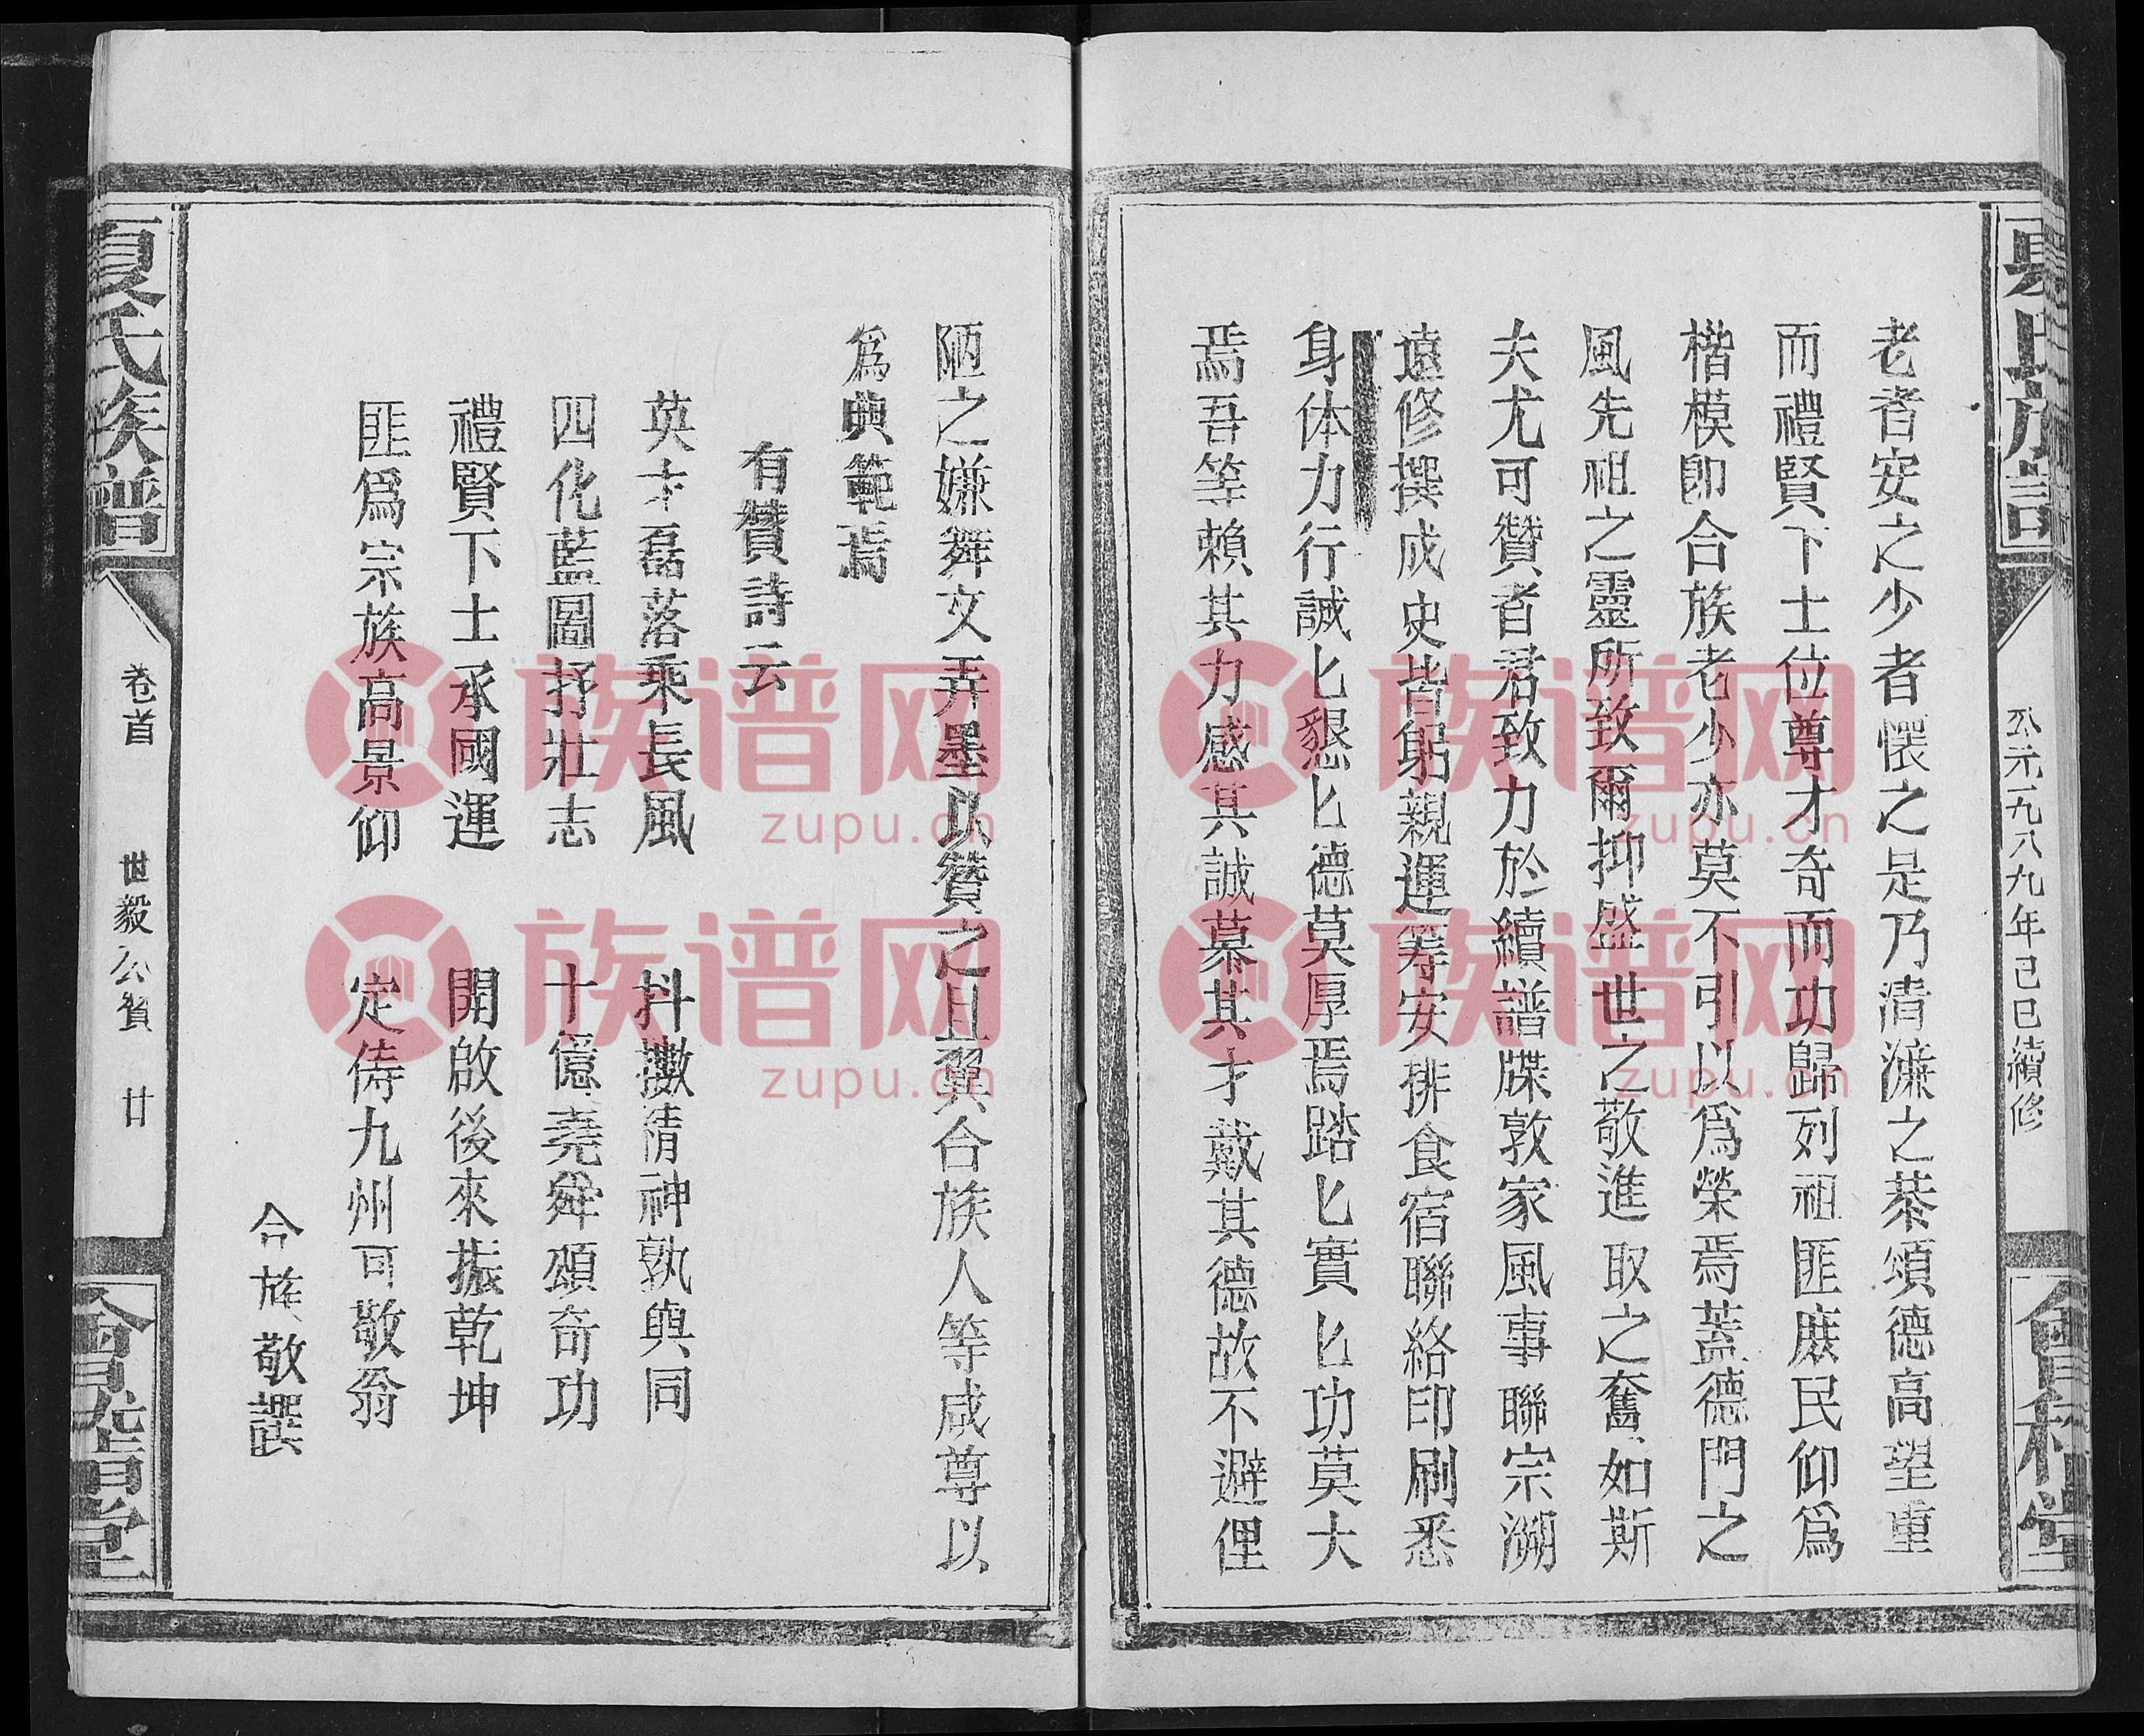 公元一九八九年己巳續修
老者安之少者懷之是乃清濂之恭頌德高望重
而禮賢下士位尊才奇而功歸列祖匪庶民仰爲
楷模卽合族老少亦莫不引以爲榮焉蓋德門之
風先祖之靈所致爾抑盛世之敬進取之奮如斯
夫尤可贊者君致力於續譜牒敦家風事聯宗溯
遠修撰成史皆躬親運筹安排食宿聯絡印刷悉
身体力行誠匕懇匕德莫厚焉踏匕實匕功莫大
焉吾等賴其力感其誠慕其才戴其德故不避俚
陋之嫌舞文弄墨以贊之且冀合族人等咸尊以
爲典範焉
有贊詩云
英才磊落乘長風 抖擻精神孰與同
四化藍圖抒壯志 十億堯舜頌奇功
禮賢下士承國運 開啟後來振乾坤
匪爲宗族高景仰 定侍九州可敬翁
合族敬譔
夏氏族譜
卷首
世毅公贊
廿
族谱网
zupu.cn
族谱网
zupu.cn
族谱网
zupu.cn
族谱网
zupu.cn